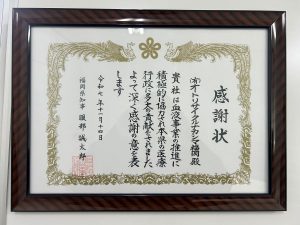 感謝状
㈲オートリサイクルナカシマ福岡殿
貴社は血液事業の推進に
積極的に協力され本県の医療
行政に多大な貢献をされました
よって深く感謝の意を表
します
令和七年十一月十四日
福岡県知事 服部誠太郎